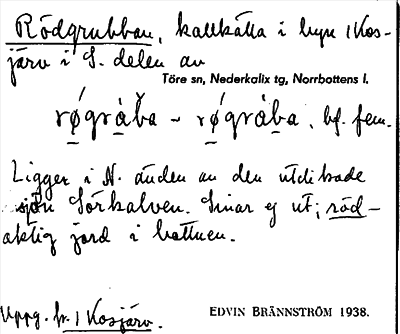 Rödgrubban, kallkälla i byn 1 Kos-
järv i S. delen av
Töre sn, Nederkalix tg, Norrbottens l.
rǿgràƀa ~ rǿgràba. bf. fem.
Ligger i N. änden av den utdikade
sjön Sörkalven. Sinar ej ut; röd-
aktig jord i bottnen.
Uppg. fr. 1 Kosjärv.
EDVIN BRÄNNSTRÖM 1938.